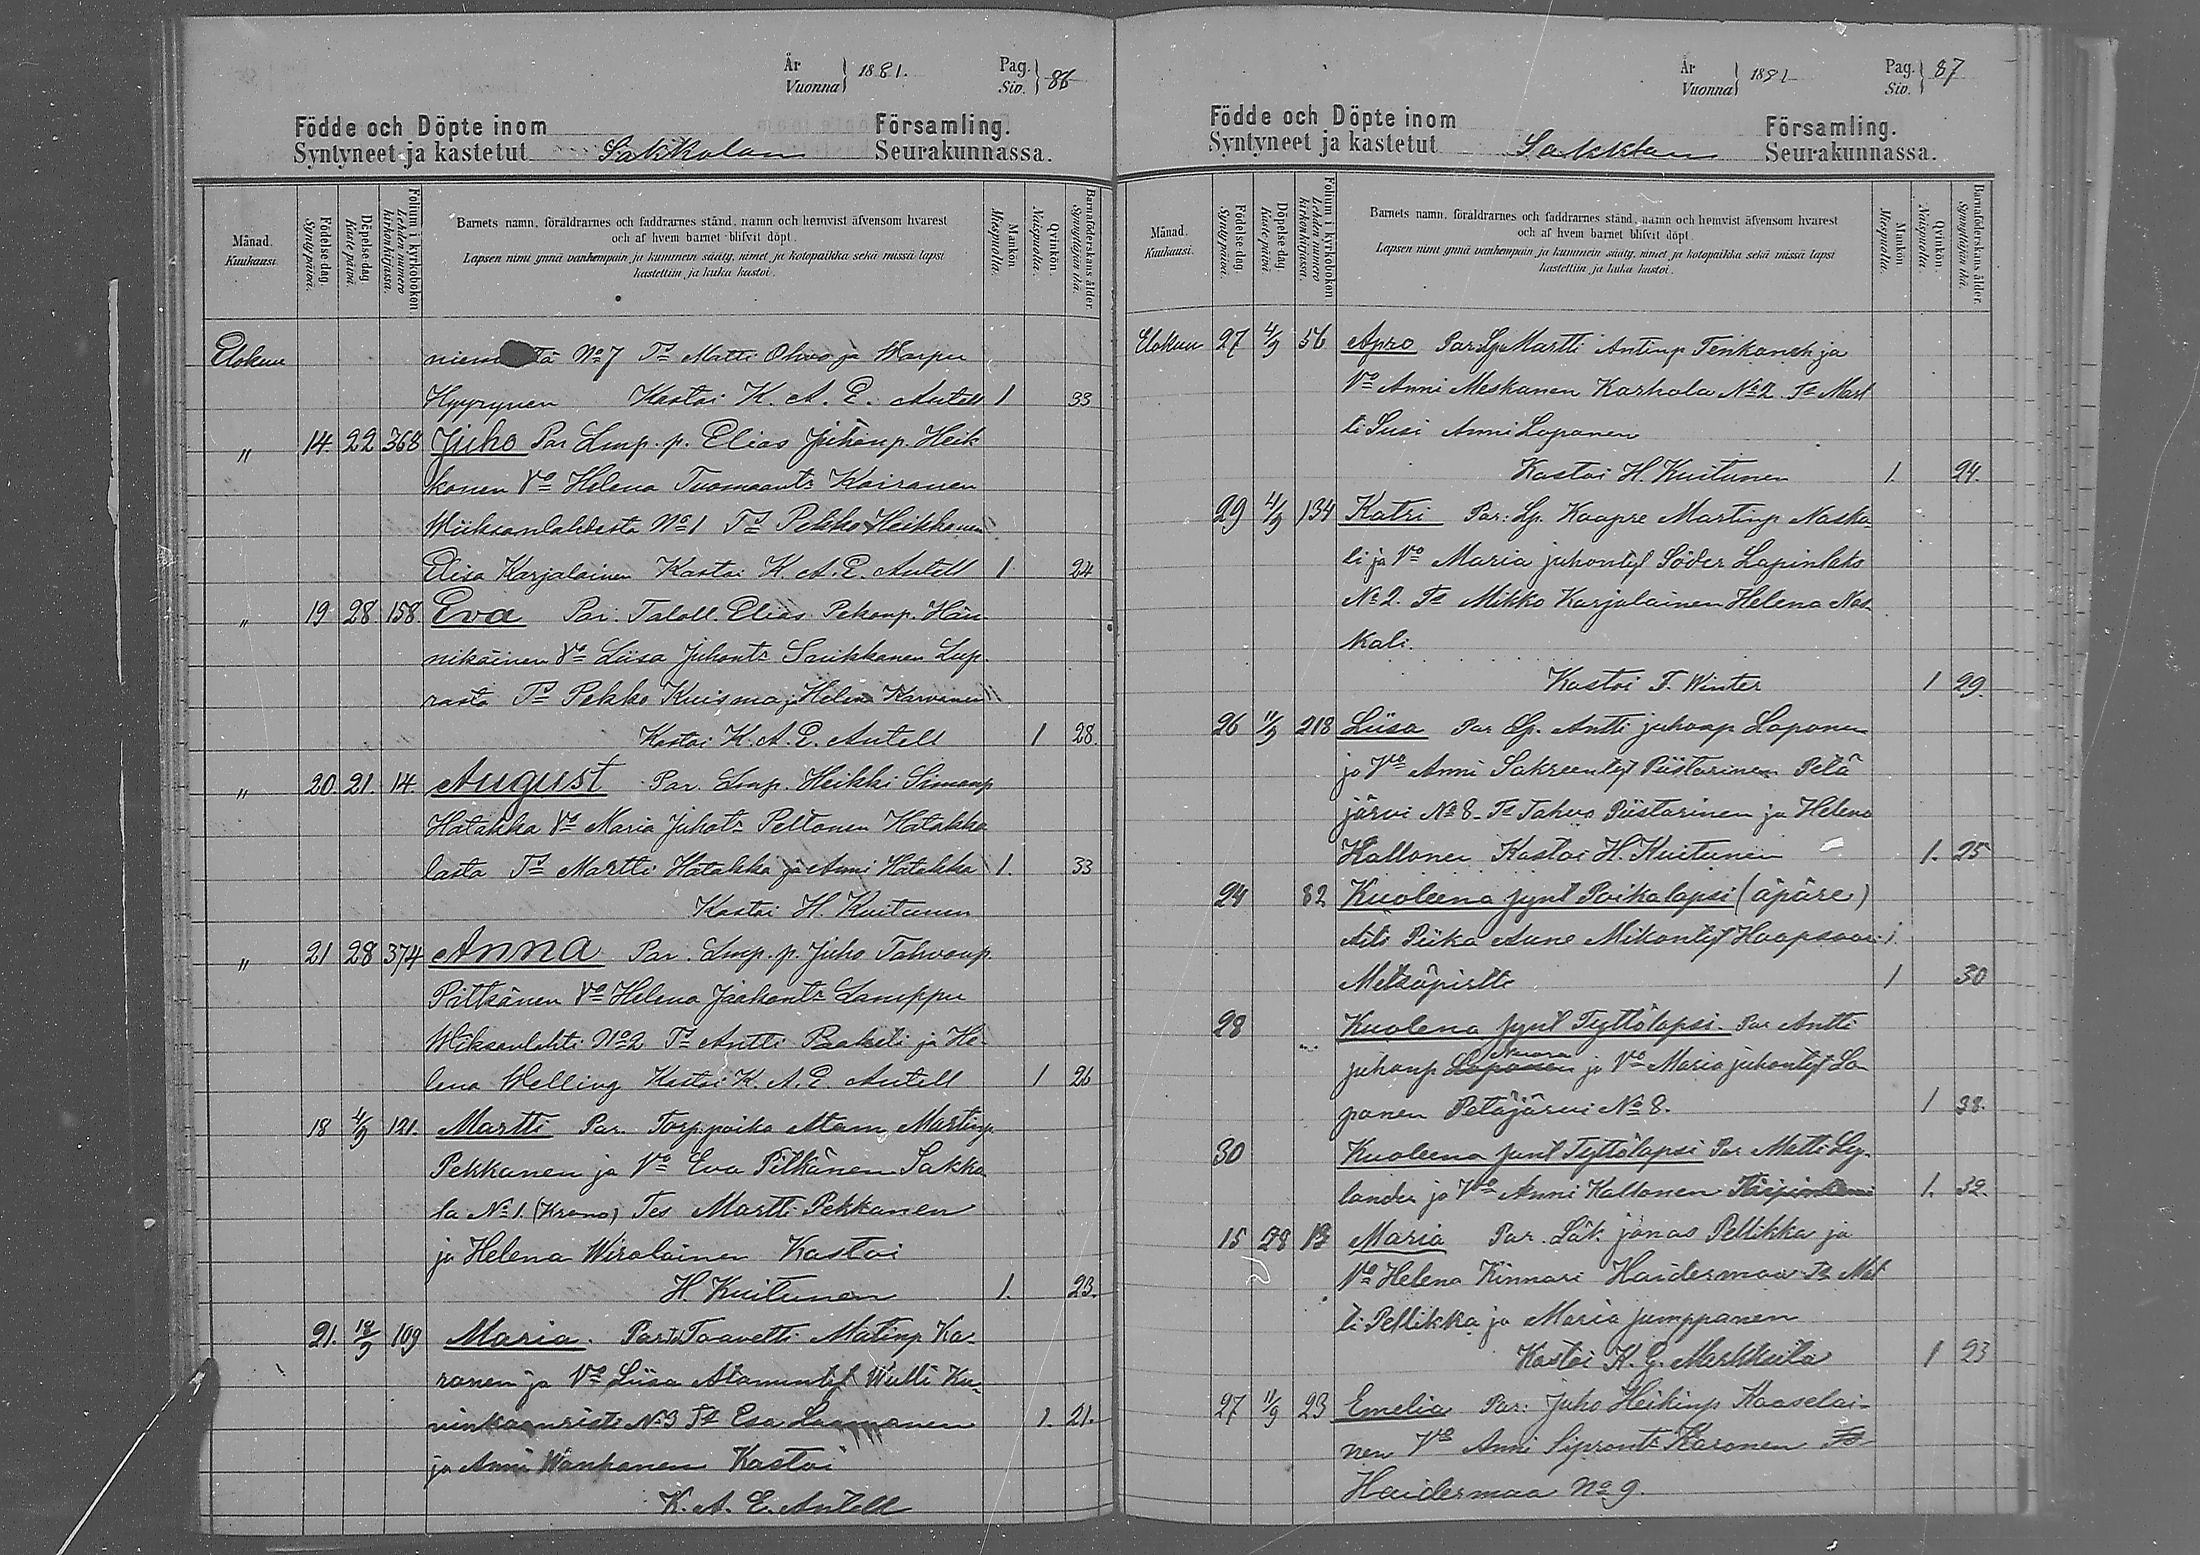 År
Vuonna } 1881.
Pag.
Siv. } 86
Födde och Döpte inom Församling.
Syntyneet ja kastetut Sakkolan Seurakunnassa.
Månad.
Kuukausi.
Födelse-dag.
Syntypäivä.
Döpelse-dag.
Kastepäivä.
Folium i kyrkoboken
Lehden numero kirkonkirjassa.
Barnets namn, föräldrarnes och faddrarnes stånd, namn och hemvist äfvensom hvarest
och af hvem barnet blifvit döpt.
Lapsen nimi ynnä vanhempain ja kummein sääty, nimet ja kotopaikka sekä missä lapsi
kastettiin ja kuka kastoi.
Mankön
Miespuolia.
Qvinkön.
Naispuolia.
Barnaföderskans ålder.
Synnyttäjän ikä.
Elokuu No 7 Ts Matti Ohvo ja Warpu
Hyyrynen Kastoi K. A. E. Antell 1 33
" 14. 22 368 Juho Par Lmp. p. Elias Juhonp. Heik
konen Vo Helena Tuomaantr Kairanen
Wiiksanlahdesta No 1 Ts Pekko Heikkonen
Elisa Karjalainen Kastoi K. A. E. Antell 1 24
" 19 28 158 Eva Par. Taloll. Elias Pekonp. Hän
nikäinen Vo Liisa Juhontr Suikkanen Lap.
rasta Ts Pekko Kuisma ja Helena Karvanen
Kastoi K. A. E. Antell 1 28.
" 20 21. 14. August Par. Lmp. Heikki Simonp
Hatakka Vo Maria Juhotr Peltonen Hatakka
lasta Ts Martti Hatakka ja Anni Hatakka 1. 33
Kastoi H. Kuitunen
" 21 28 374 Anna Par. Lmp. p. Juho Tahvonp.
Pitkänen Vo Helena Jaakontr Lamppu
Wiiksanlahti No 2 Ts Antti Paakeli ja He-
lena Welling Kastoi K. A. E. Antell 1 26
18 4/9 121. Martti Par. Torp. poika Atam Martinp.
Pekkanen ja Vo Eva Pitkänen Sakko
la No 1. (Krono) Tes Martti Pekkanen
ja Helena Wirolainen Kastoi
H. Kuitunen 1. 23.
21. 18/9 109 Maria. Par Taavetti Matinp Ka-
ronen ja Vo Liisa Atamintyt Wulli Ku-
ninkaanristi No 3 Ts Esa Laamanen 1. 21.
ja Anni Wanhanen Kastoi
K. A. E. Antell
År
Vuonna } 1881
Pag.
Siv. } 87
Födde och Döpte inom Församling.
Syntyneet ja kastetut Sakklan Seurakunnassa.
Månad.
Kuukausi.
Födelse-dag.
Syntypäivä.
Döpelse-dag.
Kastepäivä.
Folium i kyrkoboken
Lehden numero kirkonkirjassa.
Barnets namn, föräldrarnes och faddrarnes stånd, namn och hemvist äfvensom hvarest
och af hvem barnet blifvit döpt.
Lapsen nimi ynnä vanhempain ja kummein sääty, nimet ja kotopaikka sekä missä lapsi
kastettiin ja kuka kastoi.
Mankön
Miespuolia.
Qvinkön.
Naispuolia.
Barnaföderskans ålder.
Synnyttäjän ikä.
Elokuu 27 4/9 56 Apro Par: Lp Martti Antinp Tenkanen ja
Vo Anni Meskanen Karhola No 2. Ts Mart
ti Susi Anni Loponen
Kastoi H. Kuitunen 1. 24.
29 4/9 134 Katri Par: Lp. Kaapre Martinp Naska-
li ja Vo Maria juhontyt Söder Lapinlaks
No 2. Ts Mikko Karjalainen Helena Nas
kali.
Kastoi T. Winter 1 29.
26 11/9 218 Liisa Par Lp. Antti juhonp Loponen
ja Vo Anni Sakreentyt Piistarinen Petä
järvi No 8. Ts Tahvo Piistarinen ja Helena
Kallonen Kastoi H. Kuitunen 1. 25
24 82 Kuoleena synt Poikalapsi (äpäre)
Aiti Piika Anne Mikontyt Haapsaar 1.
Metsäpirtti 1 30
28 Kuolena synt Tyttölapsi. Par Antti
juhonp Loponen Nuora ja Vo Maria juhontyt Lo
ponen Petäjärvi No 8. 1 38.
30 Kuoleena synt Tyttölapsi Par Matti Ly-
lander ja Vo Anni Kallonen 1. 32.
15 28 13 Maria Par. Lät. jonas Pellikka ja
Vo Helena Kinnari Haidermaa Ts Mat
ti Pellikka ja Maria Jumppanen
Kastoi K. G. Markkula 1 23
27 11/9 23 Emelia Par: Juho Heikinp Kaaselai-
nen Vo Anni Siprontr Karonen Ts
Haidermaa No 9.